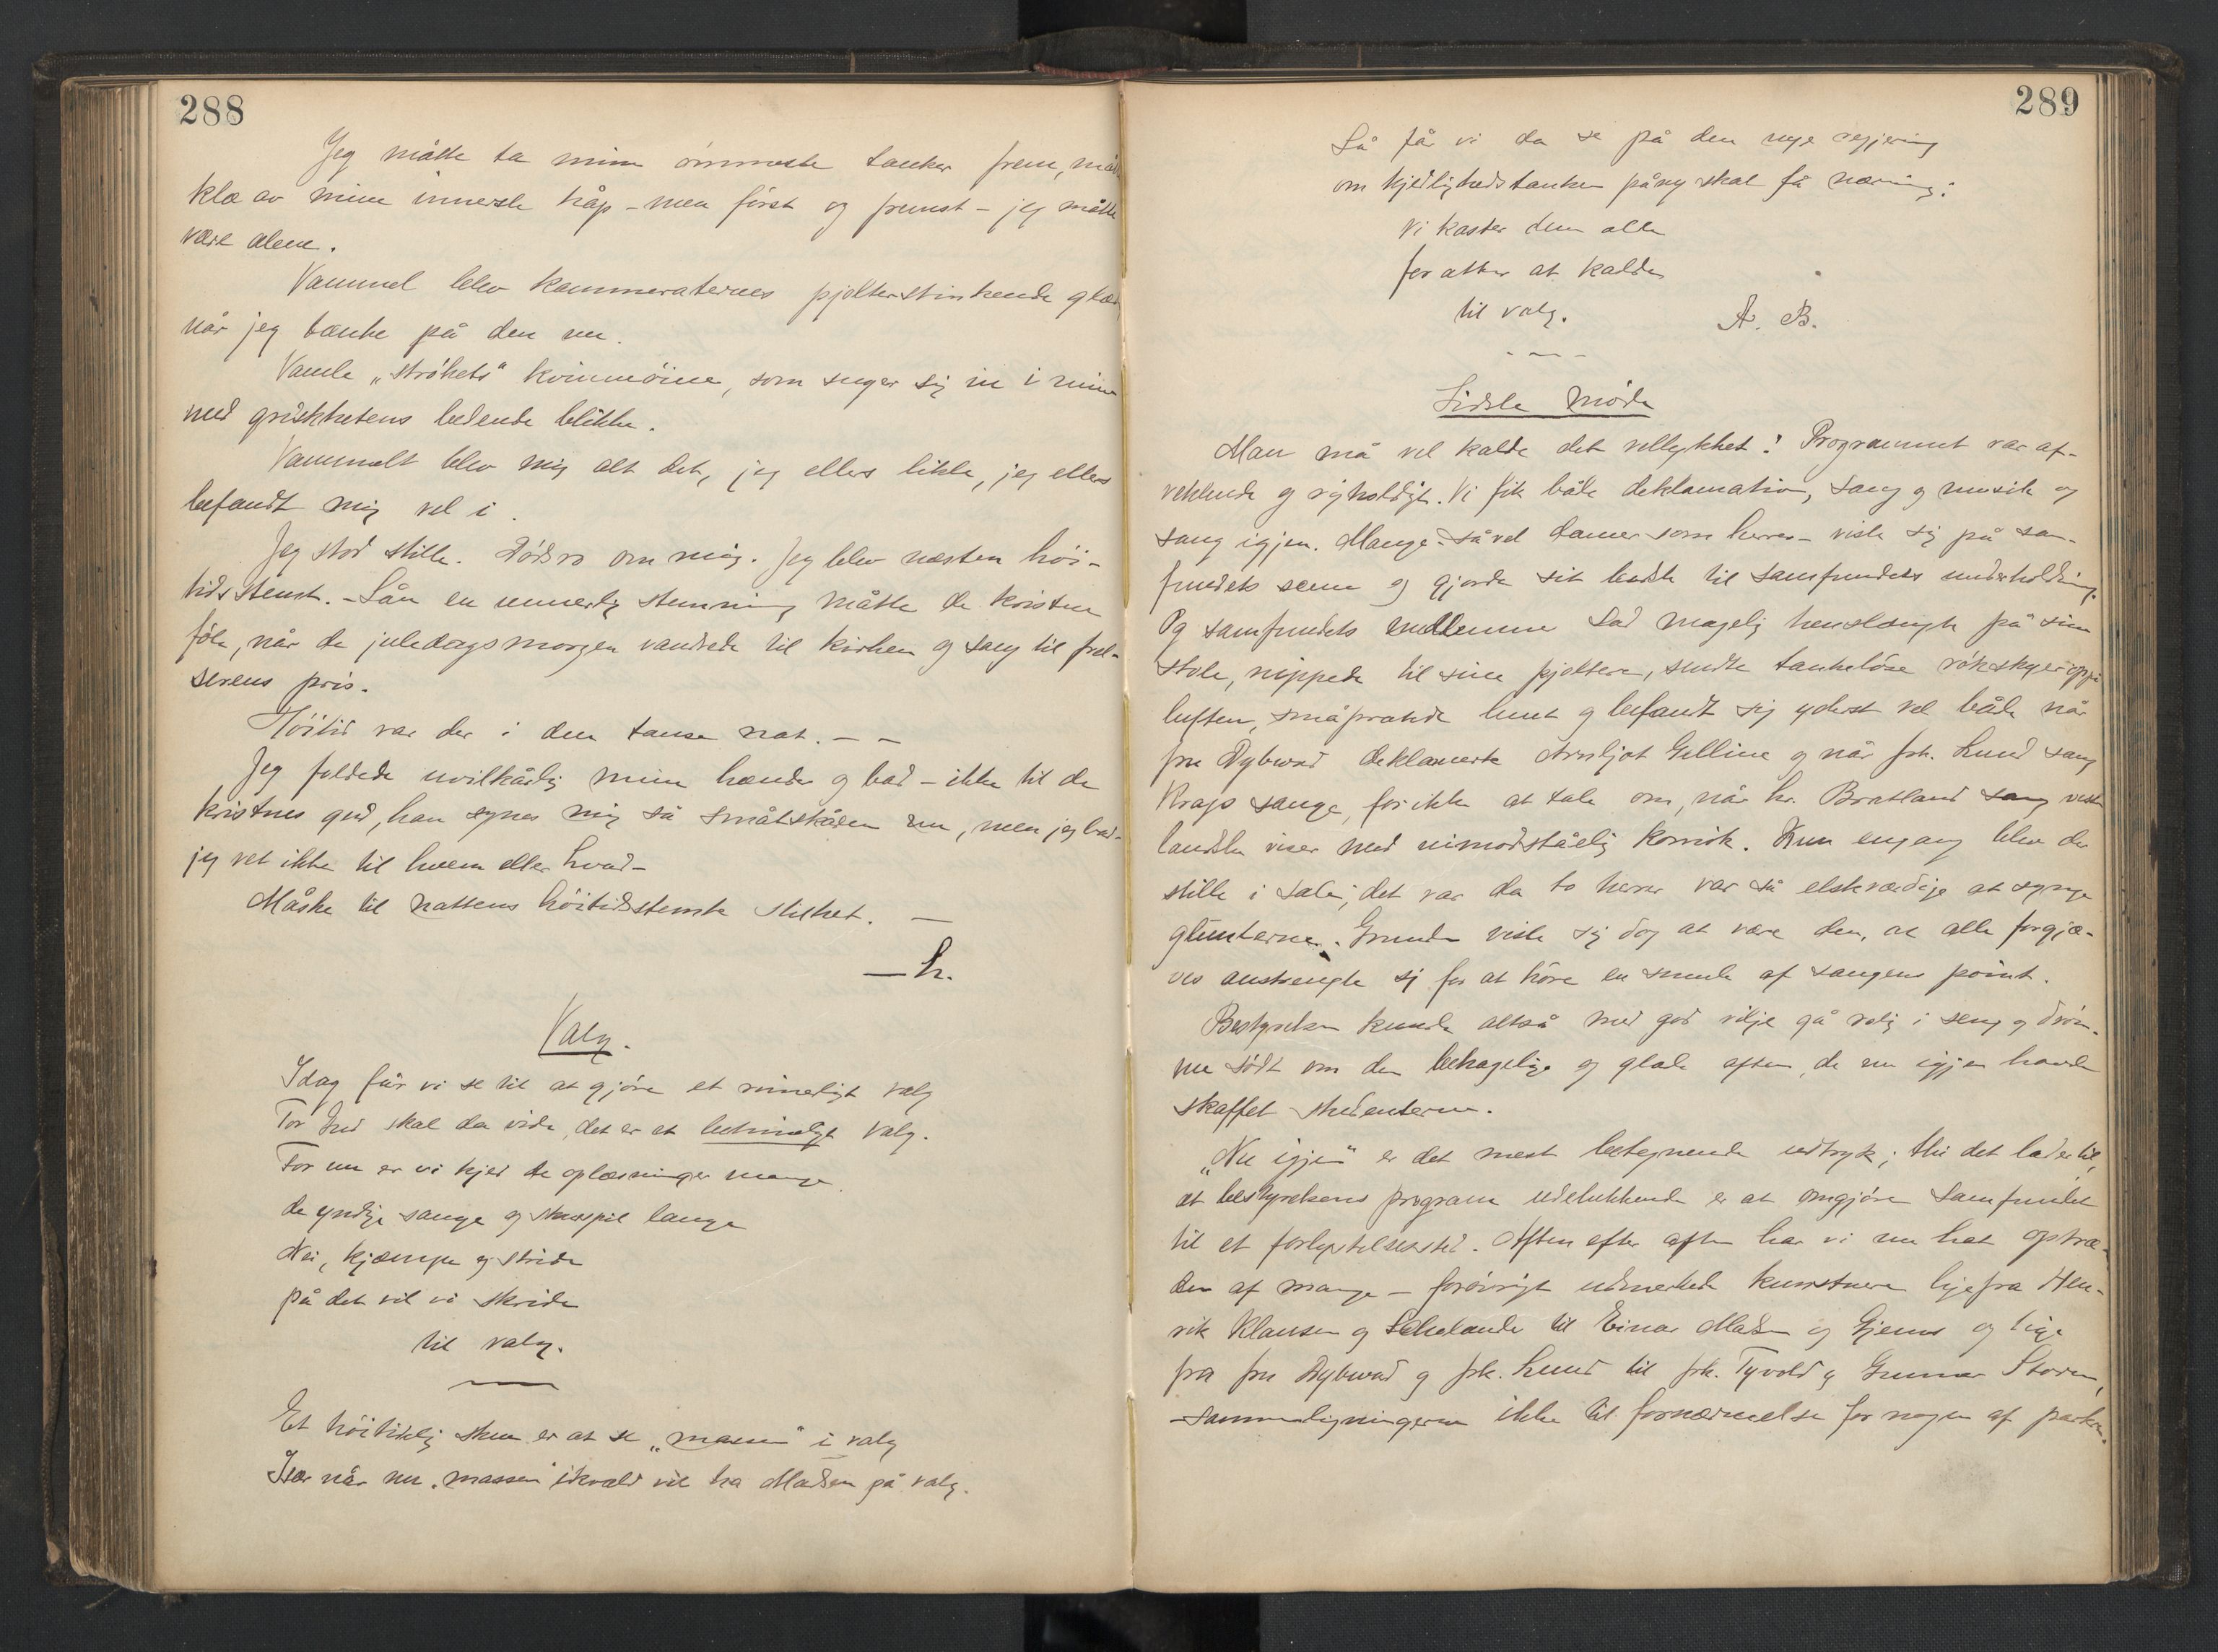 288
Jeg måtte ta mine ømmeste tanker frem, måtte
klæ av mine innerste håp – men først og fremst – jeg måtte
være alene.
Vammel blev kammeraternes pjolterstinkende glæde,
når jeg tænkte på den nu.
Vamle „strøkets“ kvinnøine, som suger sig in i mine
med griskhetens bedende blikke.
Vammelt blev mig alt det, jeg ellers likte, jeg ellers
befandt mig vel i.
Jeg stod stille. Dødsro om mig. Jeg blev næsten høi-
tidsstemt. – Sån en underlig stemning måtte de kristne
føle, når de juledagsmorgen vandrede til kirken og sang til frel-
serens pris.
Høitid var der i den tause nat. – –
Jeg foldede uvilkårlig mine hænder og bad – ikke til de
kristnes gud, han synes mig så småtskåren nu, men jeg bad –
jeg vet ikke til hvem eller hvad –
Måske til nattens høitidsstemte stilhet. –
– h.
Valg.
Idag får vi se til at gjøre et rimeligt valg
For I skal da vide, det er et betimeligt valg.
For nu er vi kjed de oplæsninger mange
de yndige sange og skuespil lange
Nei, kjæmpe og stride
på det vil vi skride
til valg.
Et høitidelig skue er at se „massen“ i valg
Især når nu „massen“ ikvæld vil ha Madsen på valg.
289
Så får vi da se på den nye regjering
om kjedlighedstanken påny skal få næring:
Vi kaster dem alle
for atter at kalde
til valg.
A. B.
Sidste møde
Man må vel kalde det vellykket! Programmet var af-
vekslende og righoldigt. Vi fik både deklamation, sang og musik og
sang igjen. Mange – såvel damer som herrer – viste sig på sam-
fundets scene og gjorde sit bedste til samfundets underholdning.
Og samfundets medlemmer sad magelig henslængte på sine
stole, nippede til sine pjoltere, sendte tankeløse røkskyer op i
luften, småpratede lunt og befandt sig yderst vel både når
fru Dybwad deklamerte Arnljot Gelline og når frk. Lund sang
Krags sange, for ikke at tale om, når hr. Bratland sang vest-
landske viser med uimodståelig komik. Kun engang blev der
stille i salen; det var da to herrer var så elskværdige at synge
glunterne. Grunden viste sig dog at være den, at alle forgjæ-
ves anstrengte sig for at høre en smule af sangens point.
Bestyrelsen kunde altså med god vilje gå rolig i seng og drøm-
me sødt om den behagelige og glade aften, de nu igjen havde
skaffet studenterne.
„Nu igjen“ er det mest betegnende udtryk; thi det lader til,
at bestyrelsens program udelukkende er at omgjøre Samfundet
til et forlystelsessted. Aften efter aften har vi nu hat optræ-
den af mange – forøvrigt udmerkede kunstnere lige fra Hen-
rik Klausen og Schelande til Einar Madsen og Gjems og lige
fra fru Dybwad og frk. Lund til frk. Tyvold og Gunnar Storm,
– sammenligningerne ikke til fornærmelse for nogen af parterne.